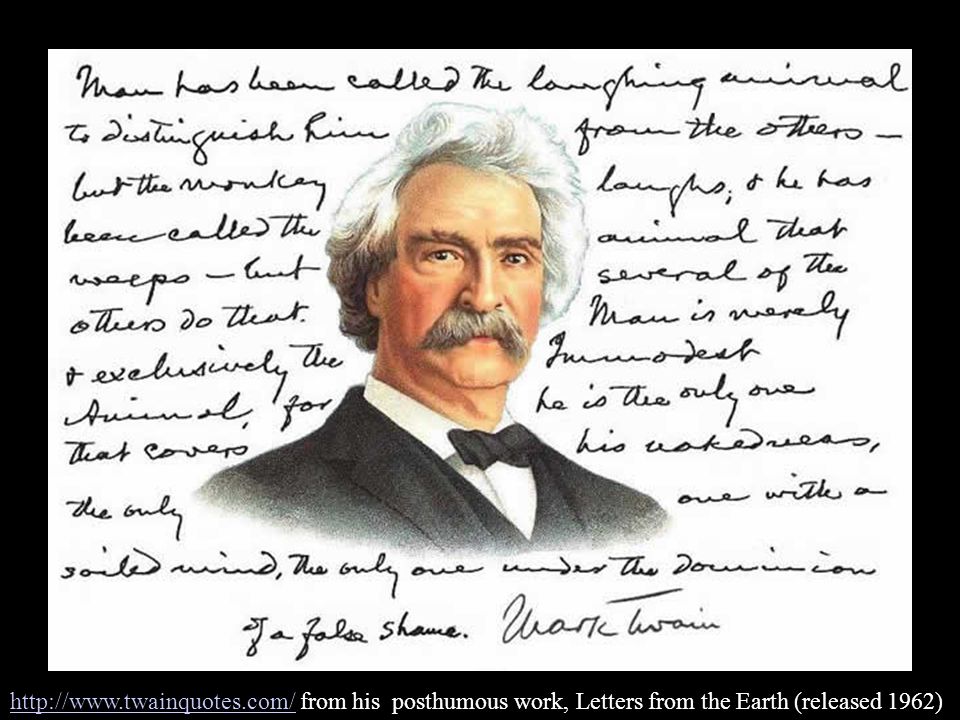 Man has been called the laughing animal
to distinguish him from the others –
but the monkey laughs, & he has
been called the animal that
weeps – but several of the
others do that. Man is merely
& exclusively the Immodest
Animal, for he is the only one
that covers his nakedness,
the only one with a
soiled mind, the only one under the dominion
of a false shame. Mark Twain
http://www.twainquotes.com/ from his posthumous work, Letters from the Earth (released 1962)